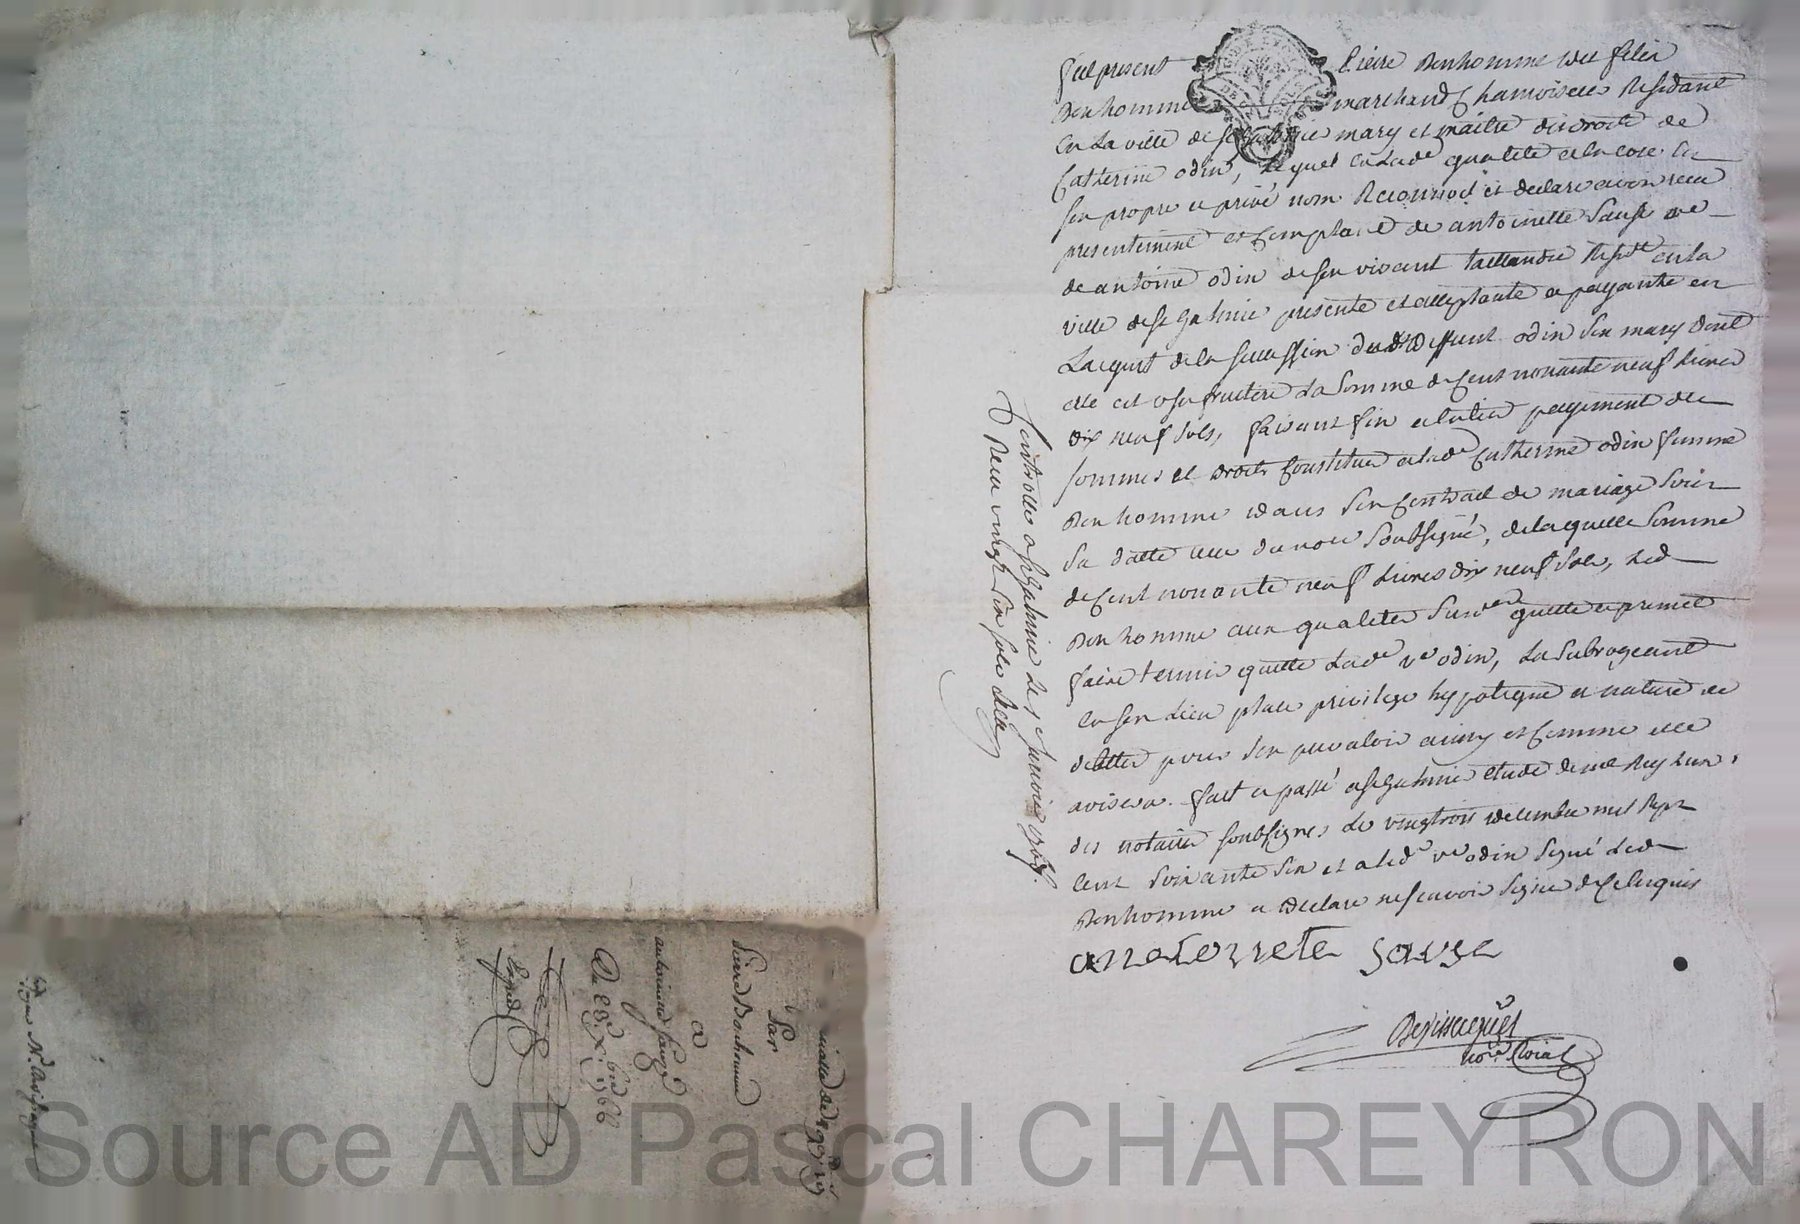 fut present Pierre Bonhomme des felix
Bonhomme marchand Chamoiseur Residant
en la ville de st galmie mary et maitre des droits de
Catherine odin, lequel en lade qualité et encore en
son propre et privé nom Reconnoit et declare avoir recu
presentement et comptant de antoinette Sauze ve
de antoine odin de son vivant taillandie Reside en la
ville de st galmie presente et acceptante et payante en
Lacquit de la succession dudt deffunt odin son mary dont
elle est usufruitiere La somme de Cent nonante neuf Livres
dix neuf sols, faisant fin et entier payement des
sommes et droits Constitués alade Catherine odin femme
Bonhomme dans son Contract de mariage sous
sa datte recu du nore soubsigné, de laquelle somme
de Cent nonante neuf Livres dix neuf sols, Led
Bonhomme aux qualités quitte et promet
faire tenir quitte Lade ve odin, La subrogeant
en son Lieu place privilege hypoteque et nature de
dettes pour sen prevaloir ainsy et Comme elle
avisera. fait et passé a st galmie etude de me Rey Lun
des notaires soubsignes Le vingtrois decembre mil sept
cent soixante six et a lade ve odin signé Led
Bonhomme a declaré ne scavoir signer de Ce enquis
anetoynete sauze
Depissacquet
nore Roial
Controllé a st galmie Le janvie 1767.
Reçu vingt six sols
quittance de 199ll 19s
Par
Pierre Bonhomme
a
antoinette sauze
Du 23e Xbre 1766
Exped
Source AD Pascal CHAREYRON